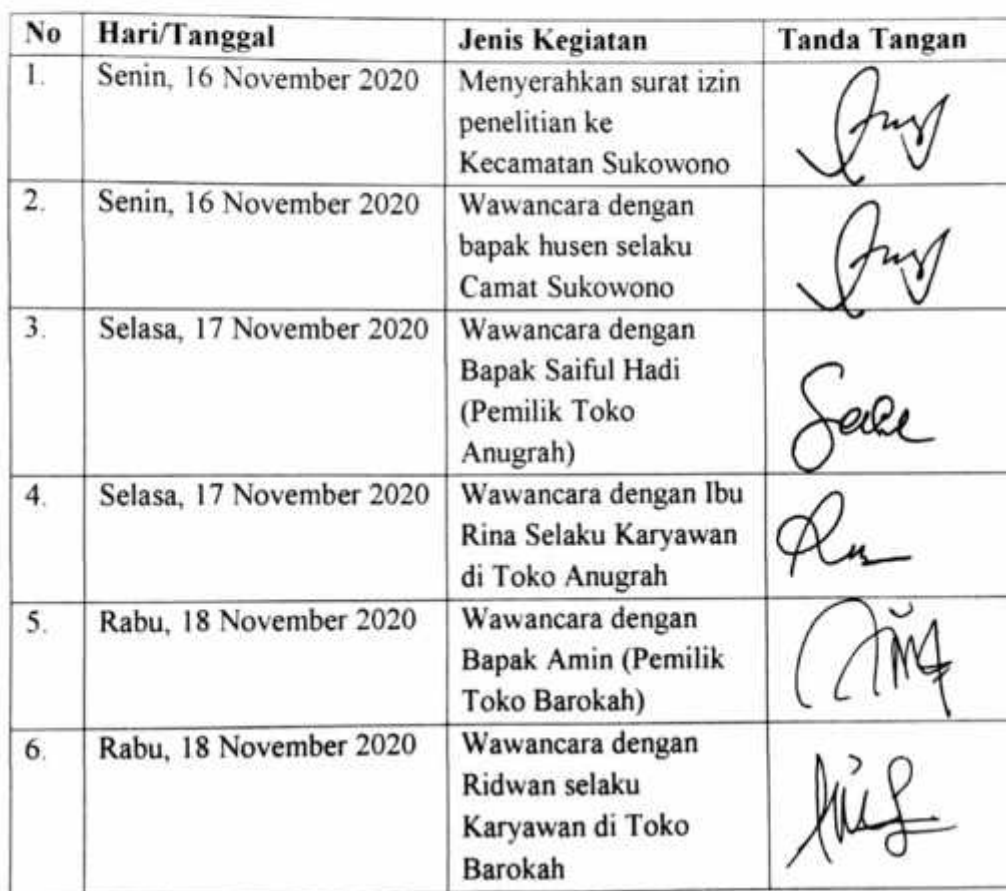 No Hari/Tanggal Jenis Kegiatan Tanda Tangan
1. Senin, 16 November 2020 Menyerahkan surat izin
penelitian ke
Kecamatan Sukowono
2. Senin, 16 November 2020 Wawancara dengan
bapak husen selaku
Camat Sukowono
3. Selasa, 17 November 2020 Wawancara dengan
Bapak Saiful Hadi
(Pemilik Toko
Anugrah)
4. Selasa, 17 November 2020 Wawancara dengan Ibu
Rina Selaku Karyawan
di Toko Anugrah
5. Rabu, 18 November 2020 Wawancara dengan
Bapak Amin (Pemilik
Toko Barokah)
6. Rabu, 18 November 2020 Wawancara dengan
Ridwan selaku
Karyawan di Toko
Barokah